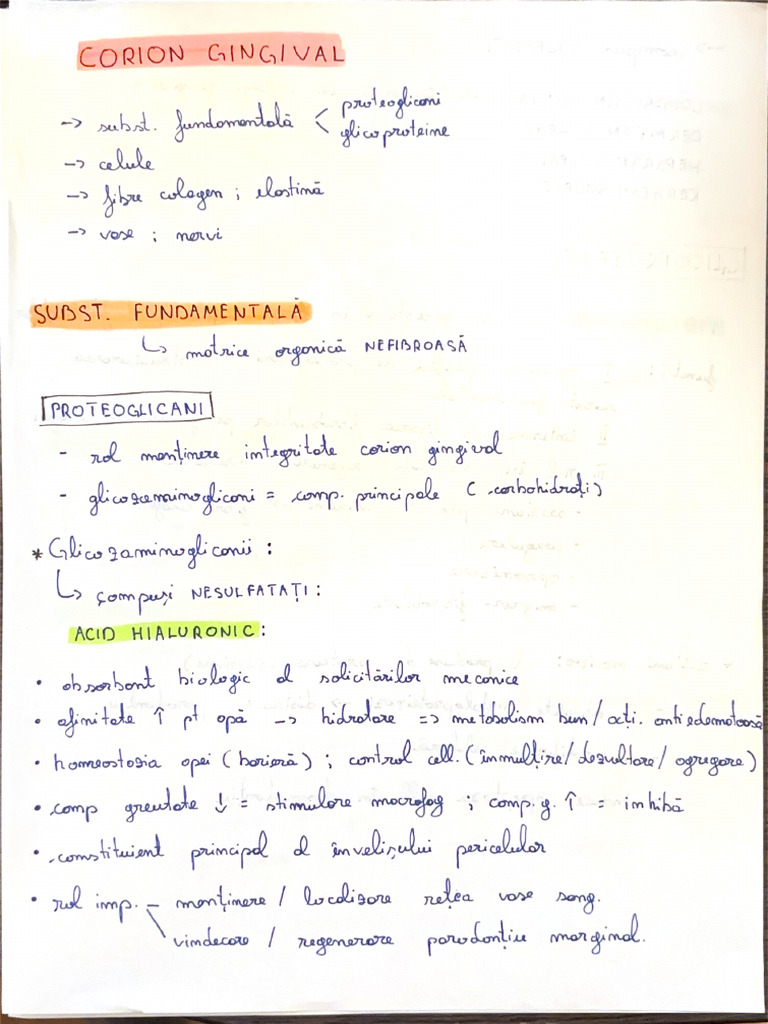 CORION GINGIVAL
-> subst. fundamentală < proteoglicani
glicoproteine
-> celule
-> fibre colagen ; elastină
-> vase ; nervi
SUBST. FUNDAMENTALĂ
↳ matrice organică NEFIBROASĂ
PROTEOGLICANI
- rol menținere integritate corion gingival
- glicozaminoglicani = comp. principale (carbohidrați)
* Glicozaminoglicanii :
↳ compuși NESULFATAȚI :
ACID HIALURONIC :
• absorbant biologic al solicitărilor mecanice
• afinitate ↑ pt apă -> hidratare => metabolism bun / acți. antiedematoasă
• homeostazia apei (barieră) ; control cell. (înmulțire / dezvoltare / agregare)
• comp greutate ↓ = stimulare macrofag ; comp. g. ↑ = inhibă
• constituient principal al învelișului pericelular
• rol imp. – menținere / localizare rețea vase sang.
\ vindecare / regenerare parodonțiu marginal.